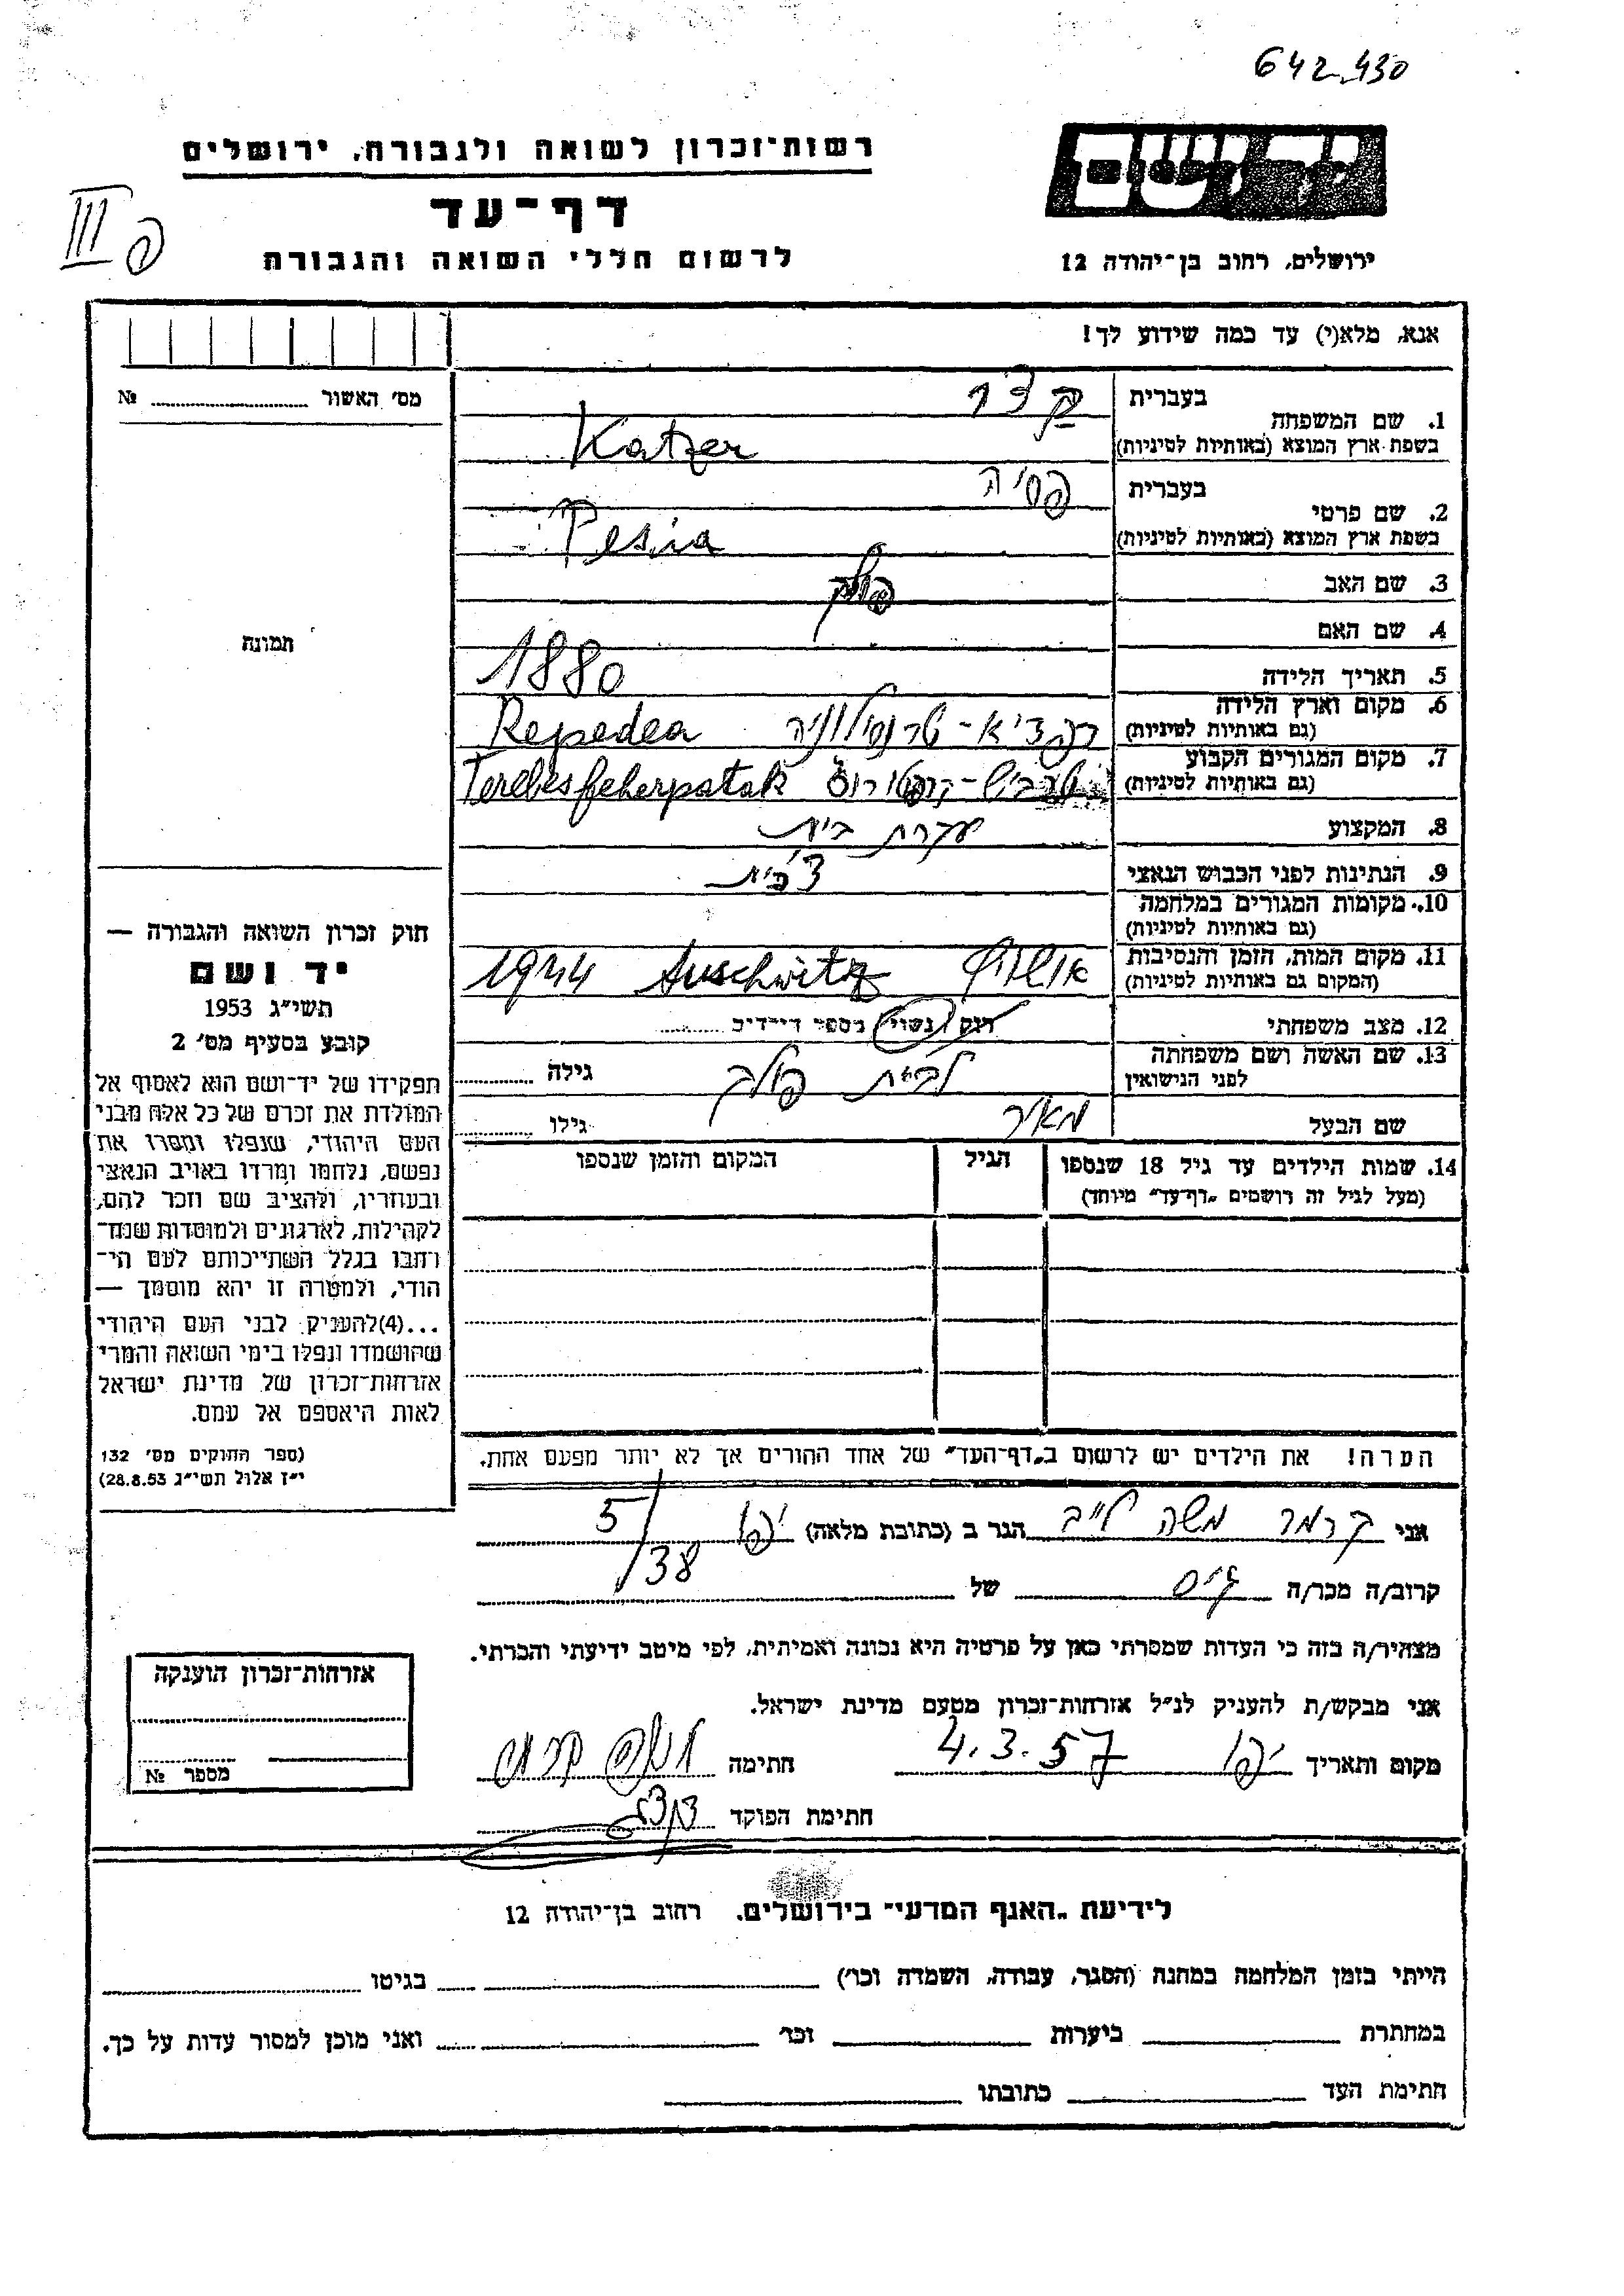 642430
יד ושם
רשות־זכרון לשואה ולגבורה, ירושלים
דף־עד
לרשום חללי השואה והגבורה
ירושלים, רחוב בן־יהודה 12
פ III
אנא, מלא(י) עד כמה שידוע לך!
מס' האשור № ........
1. שם המשפחה
בעברית קצר
בשפת ארץ המוצא (באותיות לטיניות) Katzer
2. שם פרטי
בעברית פסיה
בשפת ארץ המוצא (באותיות לטיניות) Pesia
3. שם האב
4. שם האם
5. תאריך הלידה 1880
6. מקום וארץ הלידה
(גם באותיות לטיניות) רפדיא - טרנסילוניה Repedea
7. מקום המגורים הקבוע
(גם באותיות לטיניות) Terebesfeherpatak
8. המקצוע עקרת בית
9. הנתינות לפני הכבוש הנאצי צ'כית
10. מקומות המגורים במלחמה
(גם באותיות לטיניות)
11. מקום המות, הזמן והנסיבות
(המקום גם באותיות לטיניות) אושויץ Auschwitz 1944
12. מצב משפחתי רוק / נשוי / מספר הילדים ........
13. שם האשה ושם משפחתה
לפני הנישואין לבית פולק גילה ........
שם הבעל מאיר גילו ........
14. שמות הילדים עד גיל 18 שנספו
(מעל לגיל זה רושמים „דף־עד" מיוחד)
הגיל
המקום והזמן שנספו
הערה! את הילדים יש לרשום ב„דף־העד" של אחד ההורים אך לא יותר מפעם אחת.
תמונה
חוק זכרון השואה והגבורה —
יד ושם
תשי"ג 1953
קובע בסעיף מס' 2
תפקידו של יד־ושם הוא לאסוף אל
המולדת את זכרם של כל אלה מבני
העם היהודי, שנפלו ומסרו את
נפשם, נלחמו ומרדו באויב הנאצי
ובעוזריו, ולהציב שם וזכר להם,
לקהילות, לארגונים ולמוסדות שנח־
רחבו בגלל השתייכותם לעם הי־
הודי, ולמטרה זו יהא מוסמך —
...(4)להעניק לבני העם היהודי
שהושמדו ונפלו בימי השואה והמרי
אזרחות־זכרון של מדינת ישראל
לאות היאספם אל עמם.
(ספר החוקים מס' 132
י"ז אלול תשי"ג 28.8.53)
אני קרמר משה לייב הגר ב (כתובת מלאה) יפו 5/38
קרוב/ה מכר/ה גיס של ........
מצהיר/ה בזה כי העדות שמסרתי כאן על פרטיה היא נכונה ואמיתית, לפי מיטב ידיעתי והכרתי.
אני מבקש/ת להעניק לנ"ל אזרחות־זכרון מטעם מדינת ישראל.
מקום ותאריך יפו 4.3.57 חתימה
חתימת הפוקד
אזרחות־זכרון הוענקה
מספר №
לידיעת „האגף המדעי" בירושלים. רחוב בן־יהודה 12
הייתי בזמן המלחמה במחנה (הסגר, עבודה, השמדה וכו') ........ בגיטו ........
במחתרת ........ ביערות ........ וכו' ........ ואני מוכן למסור עדות על כך.
חתימת העד ........ כתובתו ........